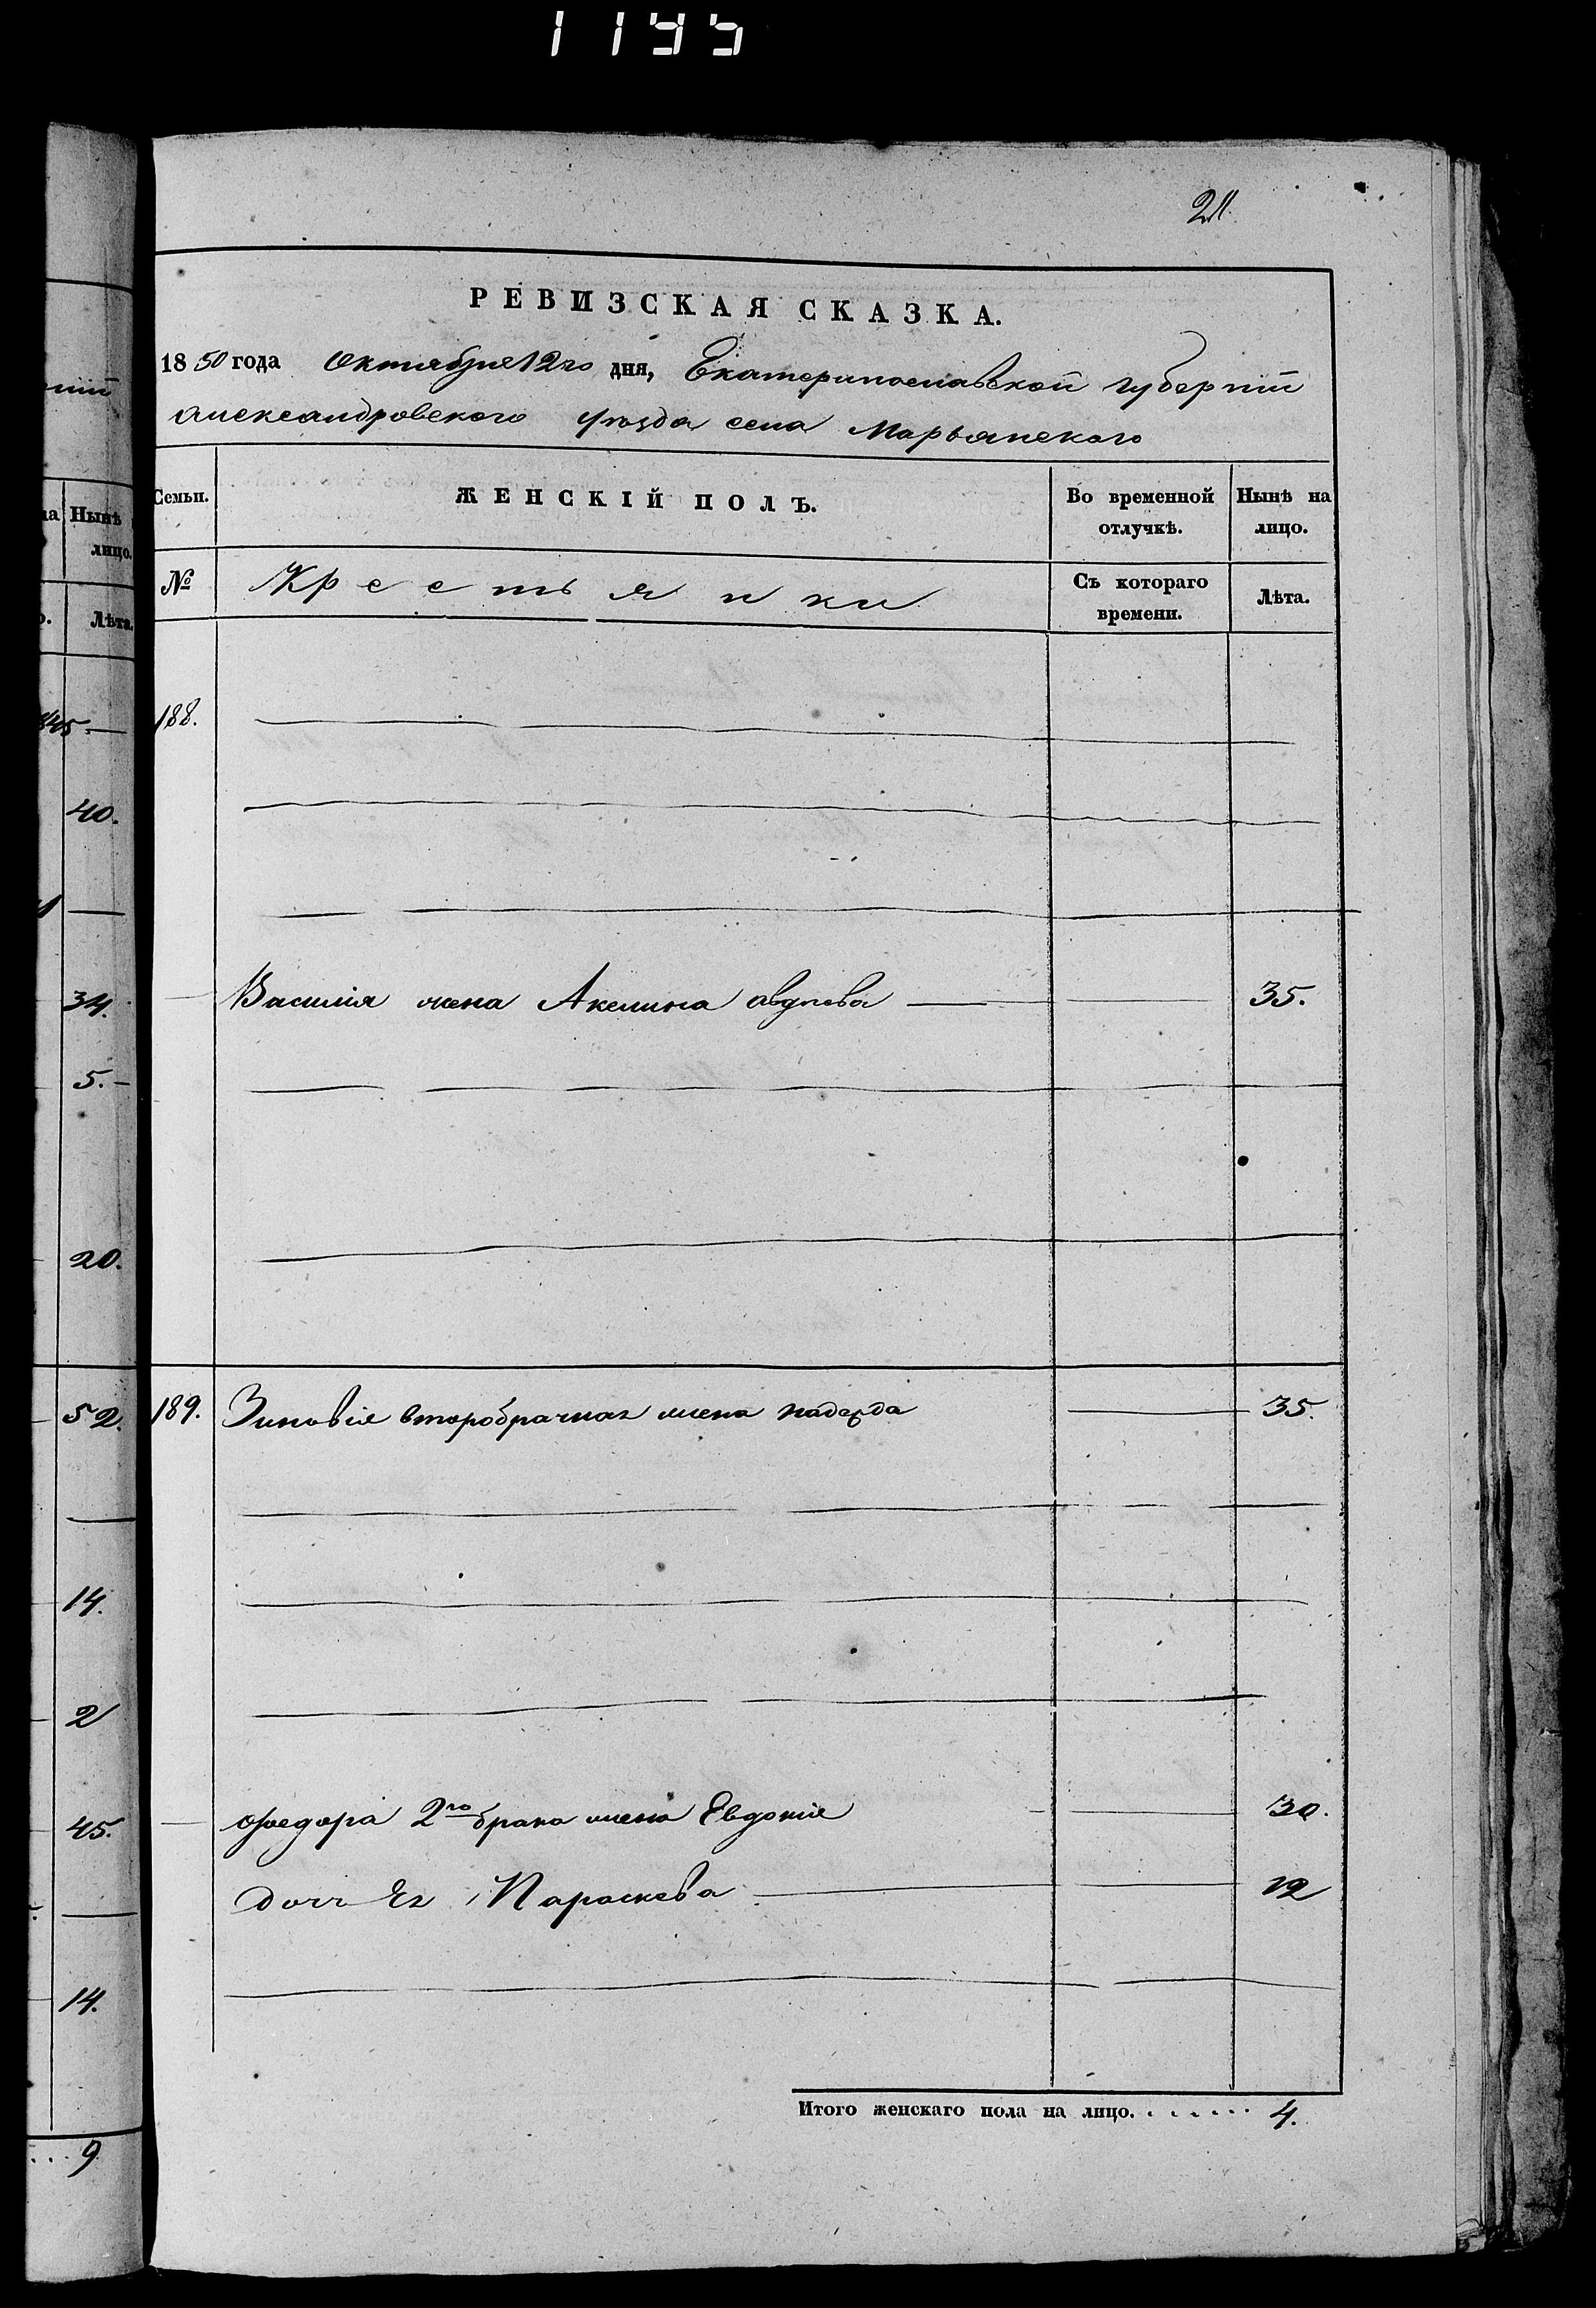 1195
211
РЕВИЗСКАЯ СКАЗКА.
1850 года Октября 12го дня, Екатеринославской губернiи
Александровского уѣзда села Марьянского
Семьи. ЖЕНСКІЙ ПОЛЪ. Во временной отлучкѣ. Нынѣ на лицо.
№ Крестьянки Съ котораго времени. Лѣта.
188.
Василiя жена Акелина Авдѣева 35.
189. Зиновiя второбрачная жена Надежда 35.
Федора 2го брака жена Евдокiя 30.
Дочь Ея Параскева 12
Итого женскаго пола на лицо. . . . . . . 4.
нiи
на Нынѣ
лицо.
Лѣта.
845
40.
34.
5.
20.
52.
14.
2
45.
14.
9